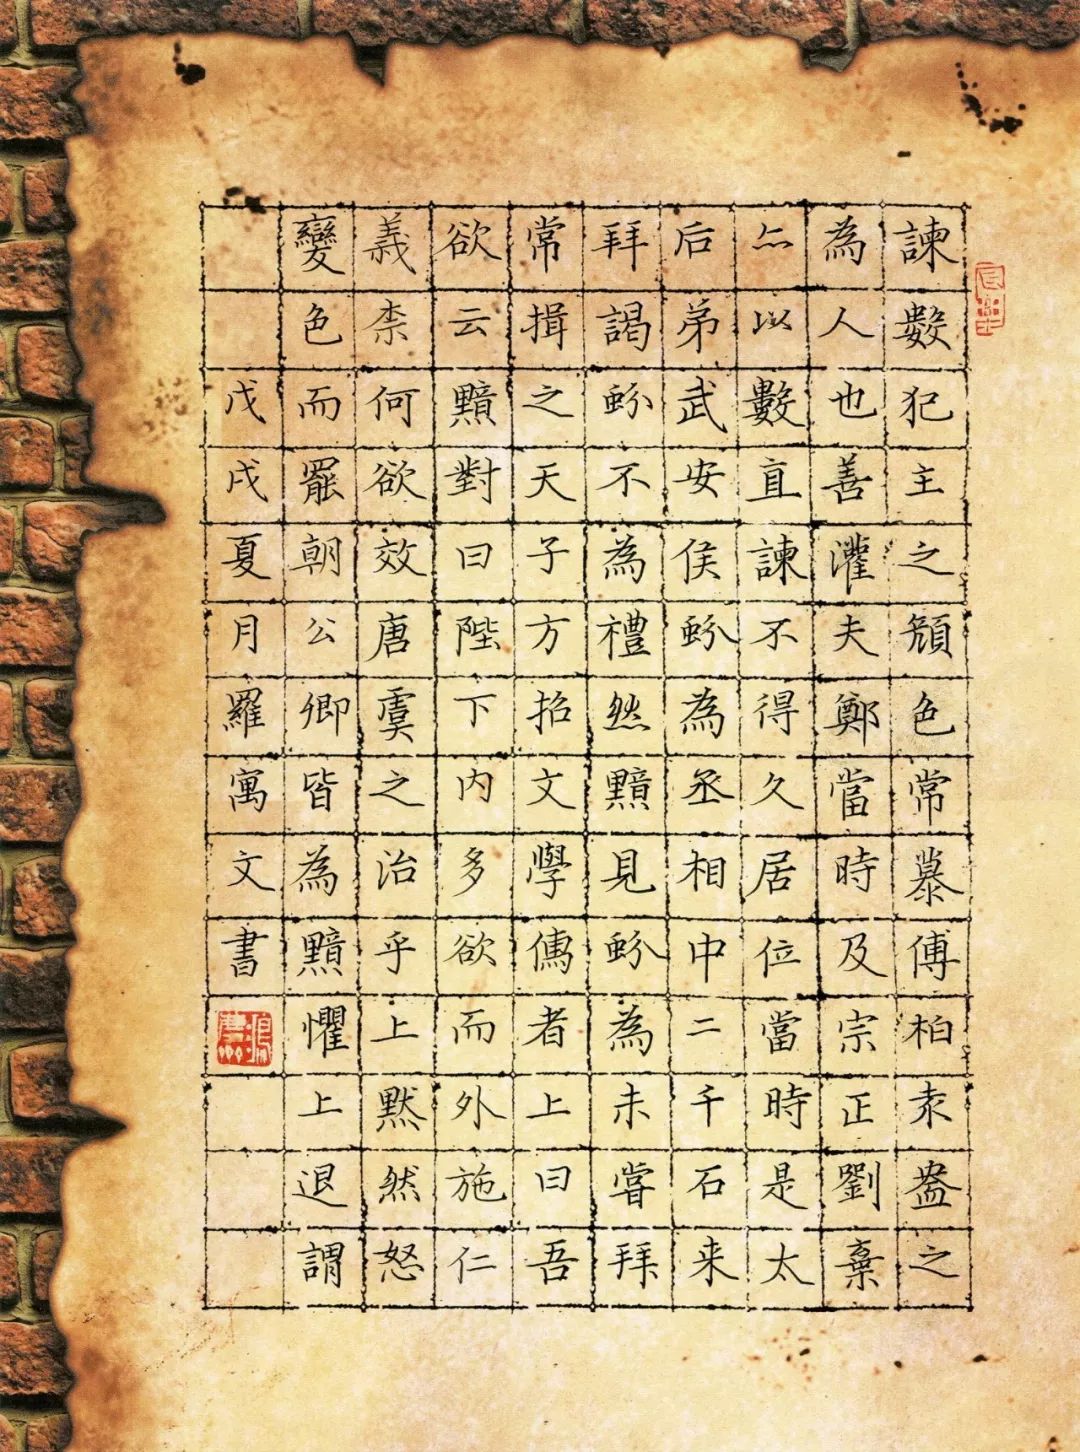 諫數犯主之顏色常慕傅柏袁盎之
為人也善灌夫鄭當時及宗正劉棄
亦以數直諫不得久居位當時是太
后弟武安侯蚡為丞相中二千石来
拜謁蚡不為禮然黯見蚡為未嘗拜
常揖之天子方招文學儒者上曰吾
欲云黯對曰陛下内多欲而外施仁
義柰何欲效唐虞之治乎上黙然怒
變色而罷朝公卿皆為黯懼上退謂
戊戌夏月羅寓文書